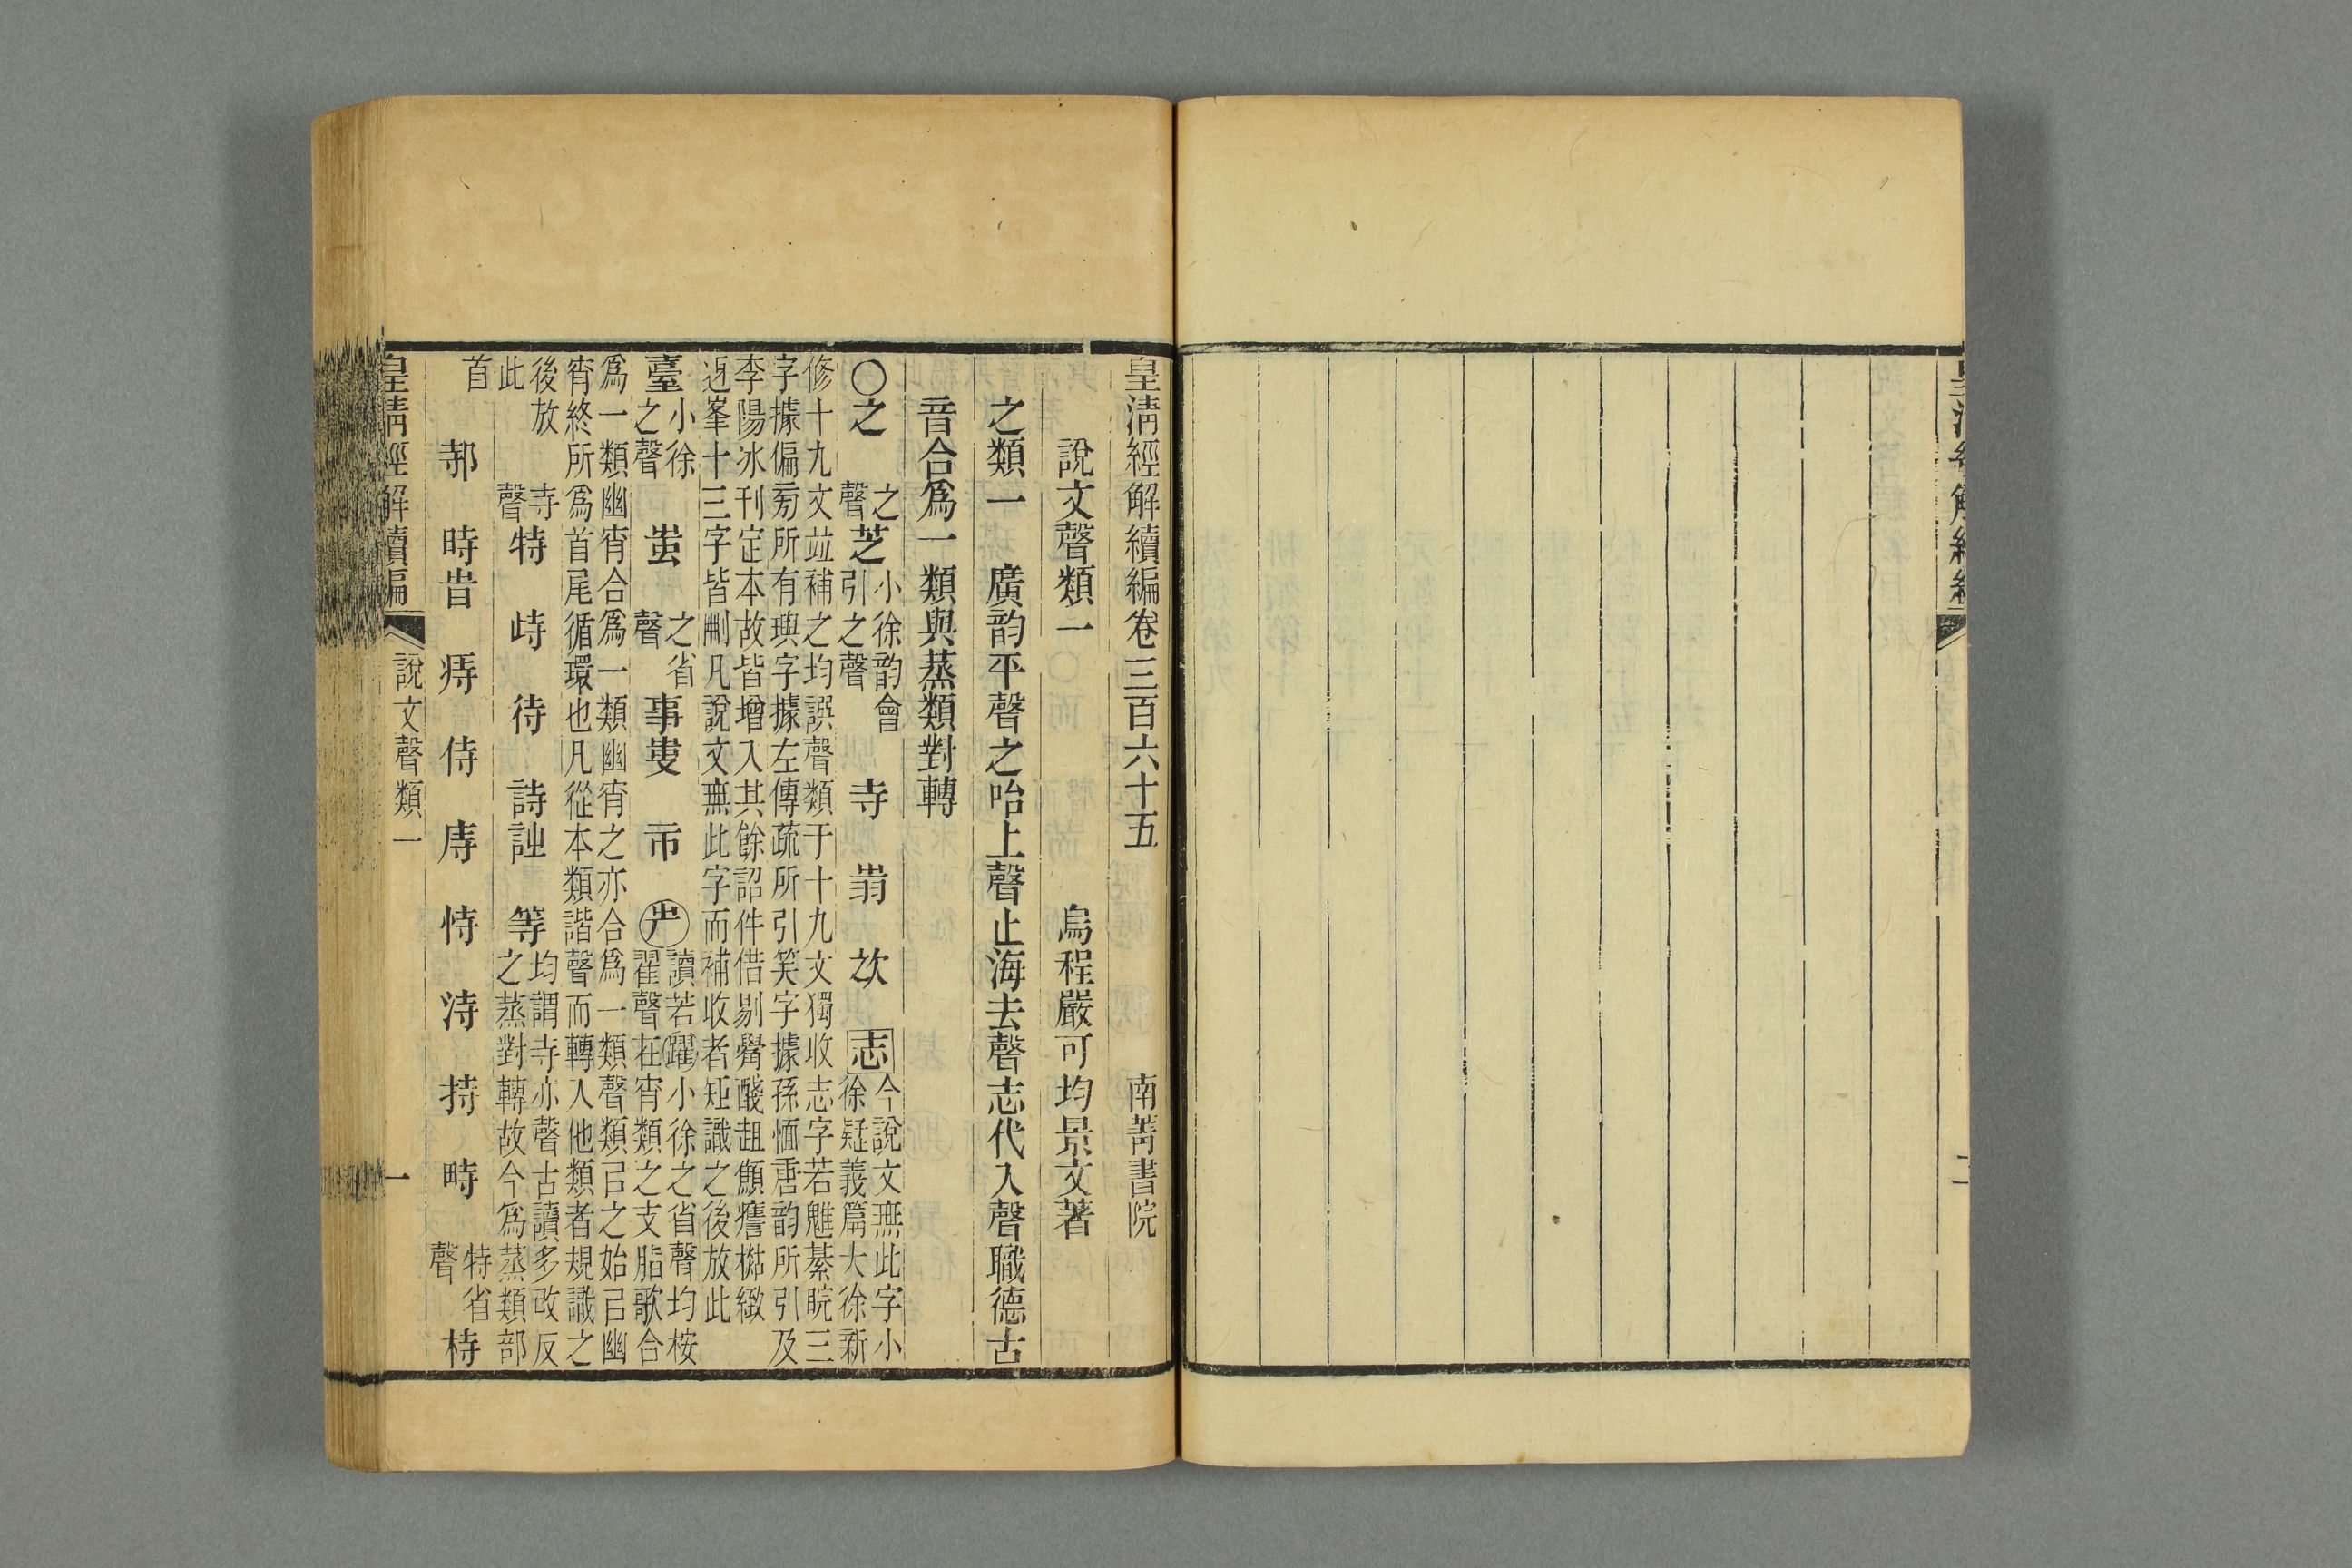 皇清經解續編卷三百六十五　南菁書院
說文聲類一　烏程嚴可均景文著
之類一　廣韵平聲之咍上聲止海去聲志代入聲職德古
音合爲一類與蒸類對轉
〇之　之聲　芝　小徐韵會引之聲　寺　㞢羽　㰞　志　今說文無此字小徐疑義篇大徐新
修十九文竝補之均誤聲類于十九文獨收志字若魋綦睆三
字據偏㫄所有璵字據左傳疏所引笑字據孫愐唐韵所引及
李陽冰刊定本故皆增入其餘詔件借剔觷醆趄顦㾶樾緻
迓峯十三字皆刪凡說文無此字而補收者矩識之後放此
臺　小徐之聲　蚩　之省聲　事　市　讀若躍小徐之省聲均桉翟聲在宵類之支脂歌合
爲一類幽宵合爲一類幽宵之亦合爲一類聲類㠯之始㠯幽
宵終所爲首尾循環也凡從本類諧聲而轉入他類者規識之
後放此　寺聲　特　峙　待　詩　等　均謂寺亦聲古讀多改反之蒸對轉故今爲蒸類部
首　邿　時旹　痔　侍　庤　恃　洔　持　畤　特省聲　㭙
皇清經解續編　說文聲類一　一